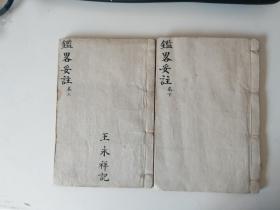 鑑畧妥註 卷上
王永祥記
鑑畧妥註 卷下